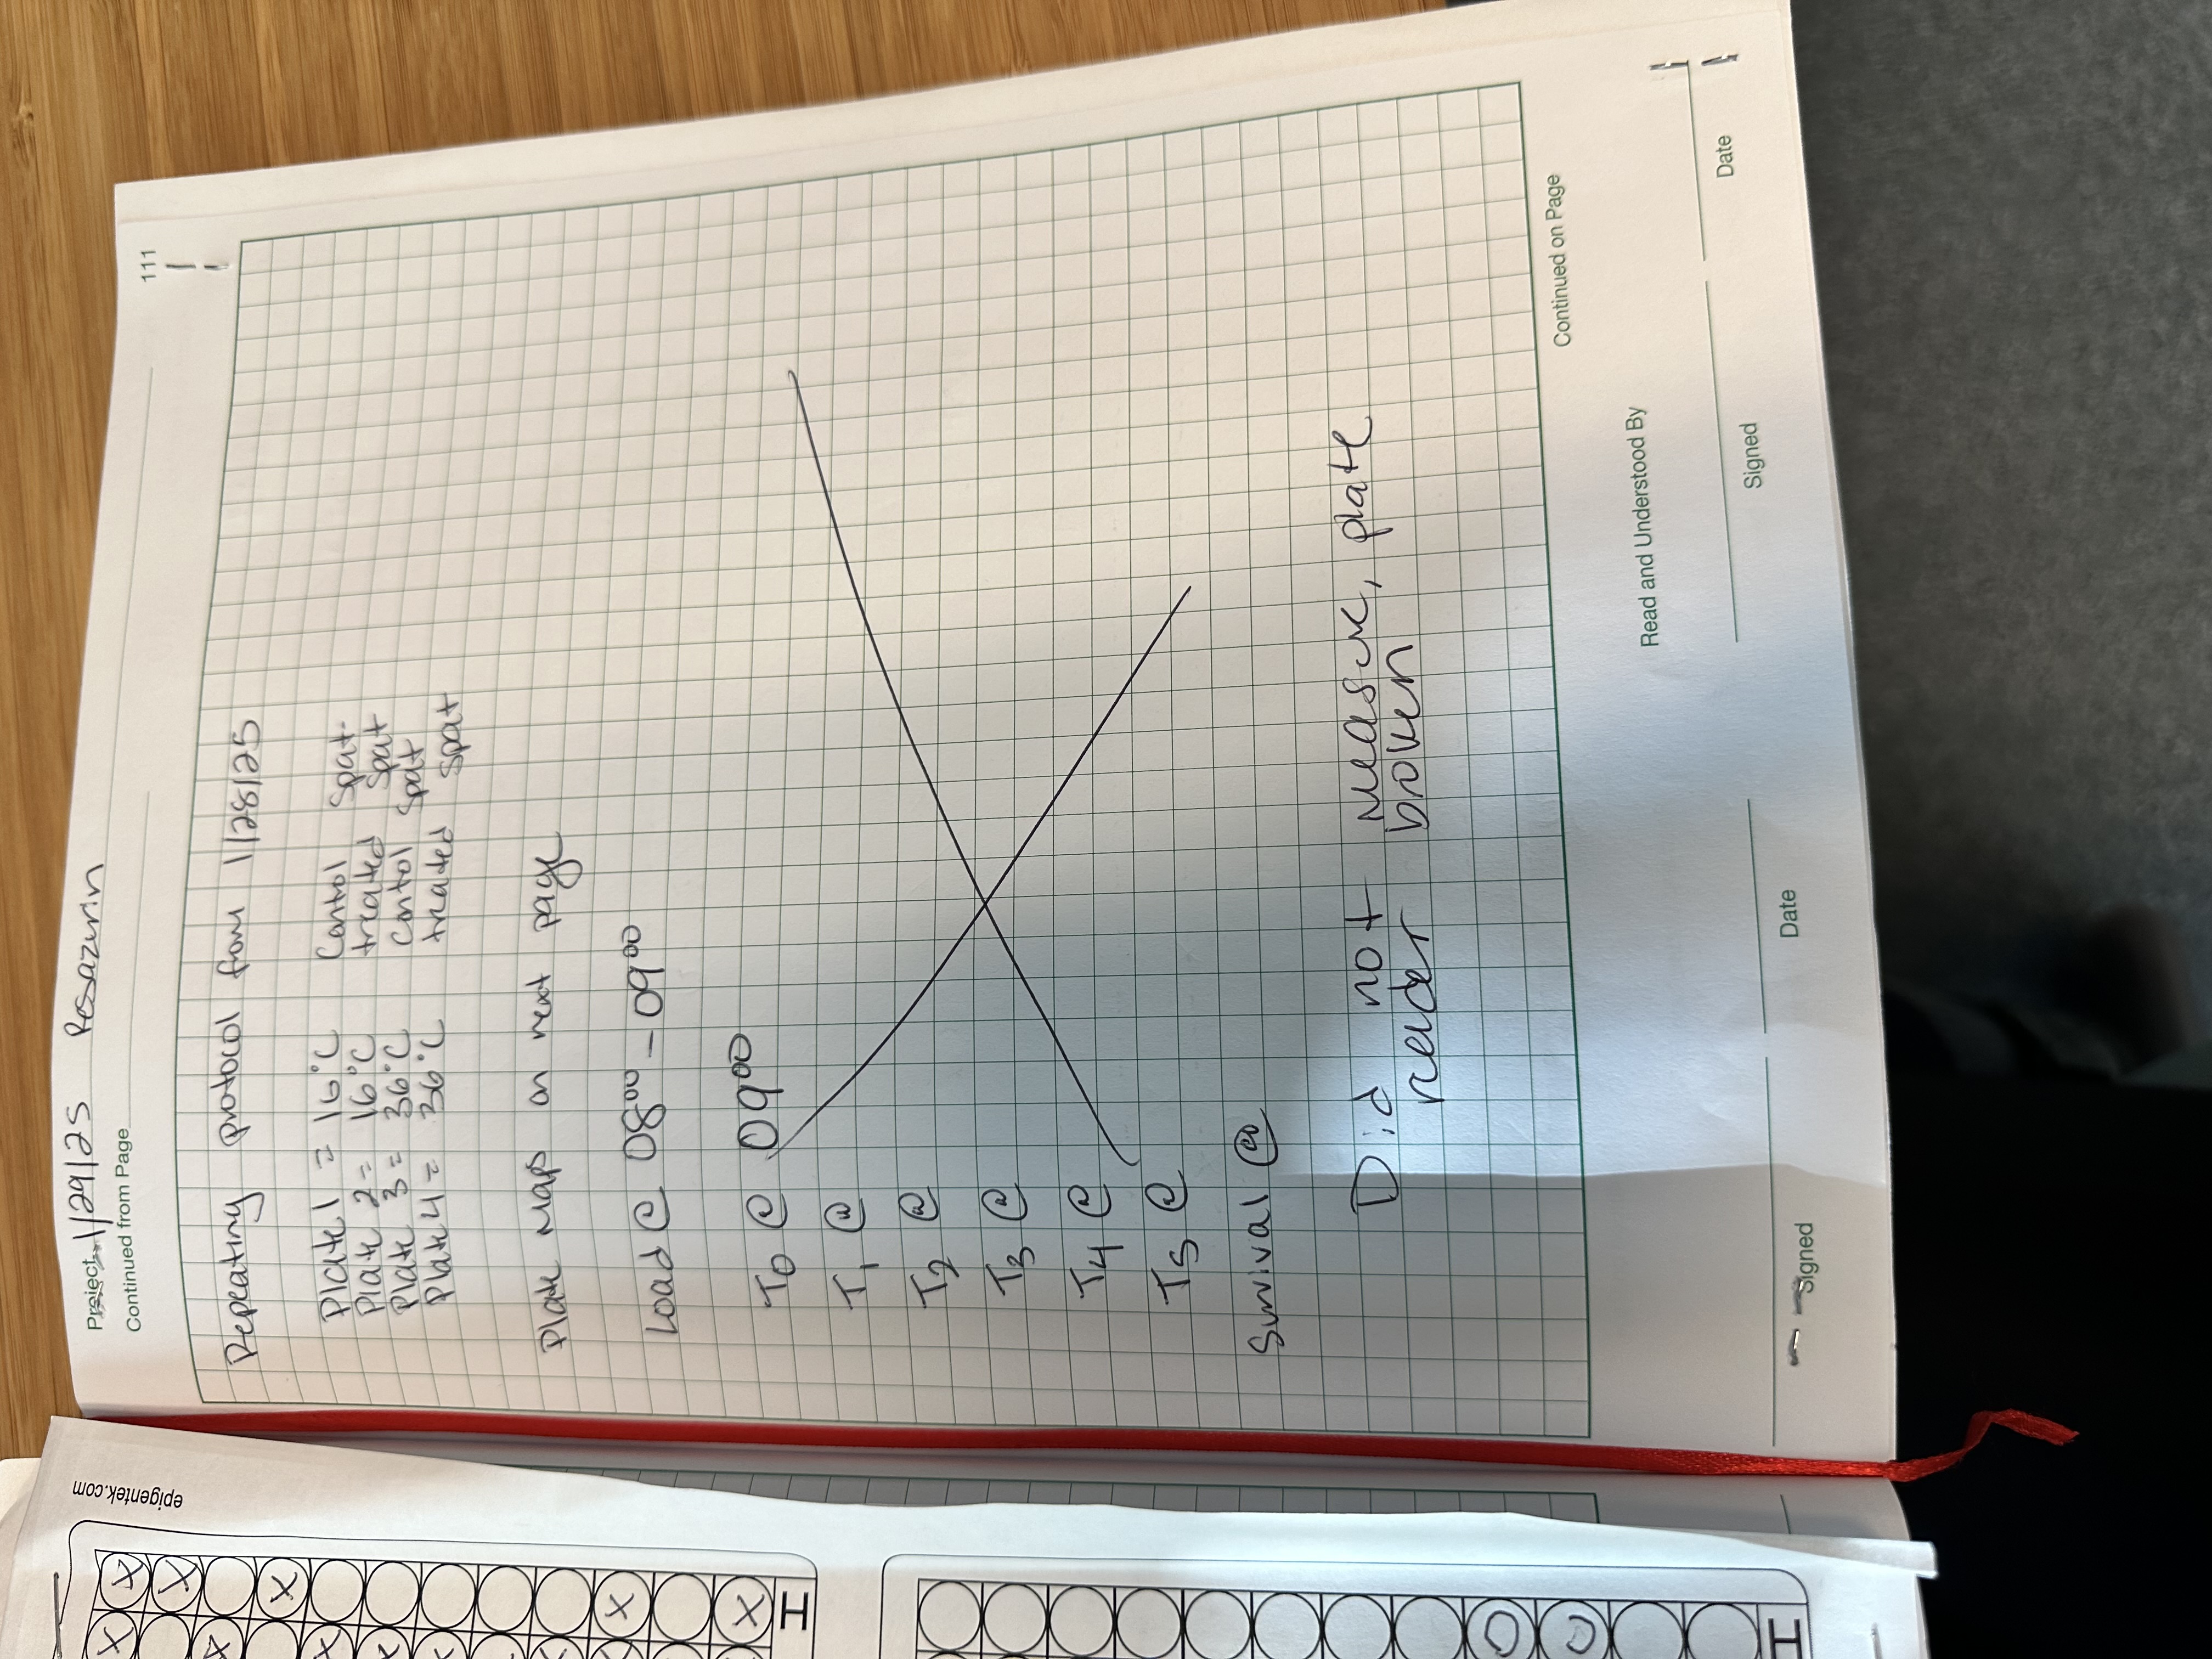 epigentek.com
Project 1/29/25 Resazurin
Continued from Page
111
Repeating protocol from 1/28/25
Plate 1 = 16°C Contol Spat
Plate 2 = 16°C treated Spat
Plate 3 = 36°C Contol Spat
Plate 4 = 36°C treated Spat
Plate Maps on next page
Load @ 08⁰⁰ - 09⁰⁰
T0 @ 09⁰⁰
T1 @
T2 @
T3 @
T4 @
T5 @
Survival @
Did not measure, plate
reader broken
Continued on Page
Read and Understood By
Signed
Date
Signed
Date
X X
X
X
X
X
X
H
O
C
H